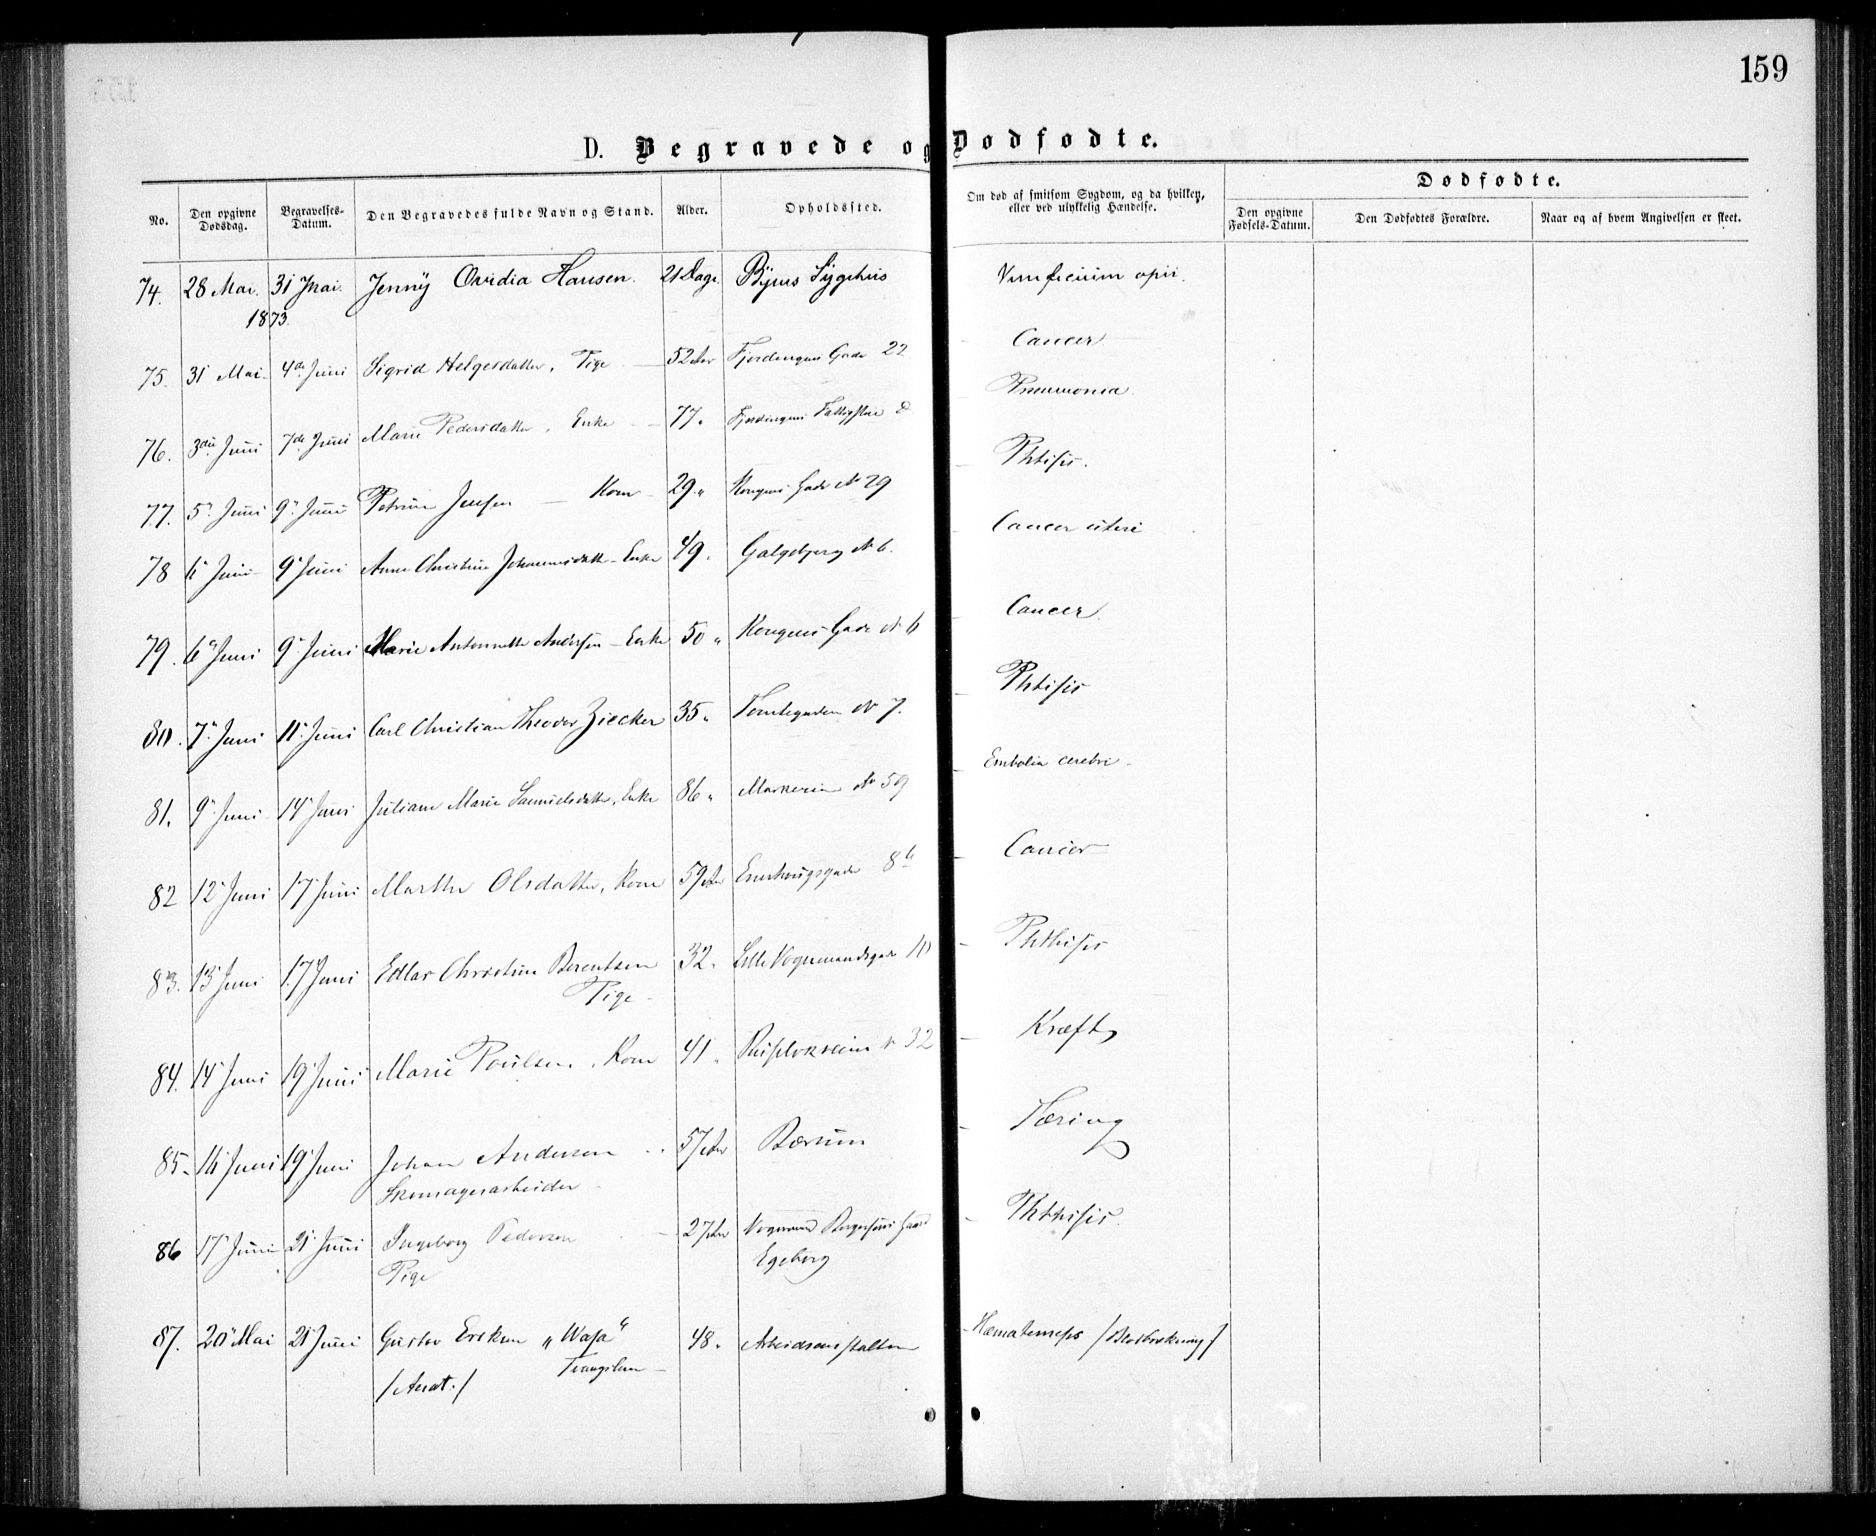 159
D. Begravede og Dødfødte.
No. Den opgivne Dødsdag. Begravelses-Datum. Den Begravedes fulde Navn og Stand. Alder. Opholdssted. Om død af smitsom Sygdom, og da hvilken, eller ved ulykkelig Hændelse. Dødfødte.
Den opgivne Fødsels-Datum. Den Dødfødtes Forældre. Naar og af hvem Angivelsen er skeet.
74. 28 Mai. 31 Mai. Jenny Ovidia Hansen. 21 Dage. Byens Sygehus Veneficium opii.
1873.
75. 31 Mai 4de Juni Sigrid Helgesdatter, Pige 52 Aar Fjerdingens Gade 22 Cancer
76. 3die Juni 7de Juni Marie Pedersdatter, Enke 77 " Fjerdingens Pneumonia.
77. 5" Juni 9" Juni Petrine Jensen Kone 29 " Kongens Gade No 29 Phtisis.
78 6" Juni 9" Juni Anne Christine Johannesdatter Enke 49 " Galgebjerg No 6. Cancer uteri
79. 6" Juni 9" Juni Marie Antonnette Andersen Enke 50 " Kongens Gade No 6 Cancer.
80. 7" Juni 11" Juni Carl Christian Theodor Ziecker 35 " Tomtegaden No 7. Phtisis
81. 9" Juni 14" Juni Juliane Marie Samuelsdatter, Enke 86 " Markveien No 59 Embolia cerebri
82 12" Juni 17" Juni Marthe Olsdatter, Kone 59 Aar Enerhougsgade 8 b Cancer
83. 13" Juni 17" Juni Christine Berentsen 32 " Lille Vognmandsgade 10 Phthisis
Pige
84. 14" Juni 19" Juni Marie Poulsen, Kone 41 " Ruseløkveien No 32 Kræft
85. 16" Juni 19" Juni Johan Andersen 57 Aar Bærum Tæring
Skomagerarbeider
86 17" Juni 21" Juni Ingeborg Pedersen 27 Aar Vognmand Gaard Phthisis.
Pige Egeberg
87. 20" Mai 21" Juni Gustav "Wasa" 48 " Arbeidsanstalten Hæmatemesis /Blodbrækning/
/Anat./ Tvangslem